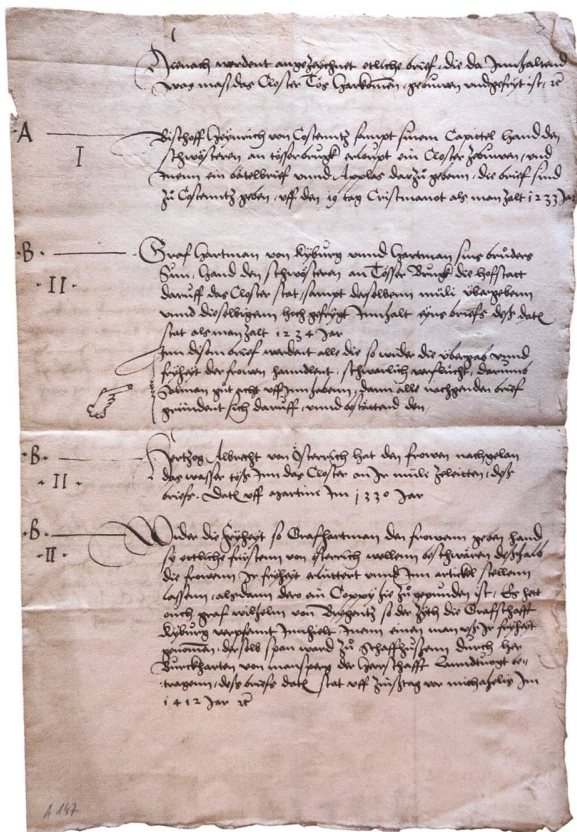 Hienach werdent angezeychnet ettliche brief, die da Jnnhaltend
was mass das Closter Tös harkomen, gebuwen unnd gefryt ist, ꝛc
A
I
Bischoff Heinrich von Costenntz sampt sinem Capittel hand den
schwösteren an Tösserbrugk erloupt ein Closter zebuwen, und
Jnenn ein batelbrieff unnd Applas darzu gebenn, die brief sind
zu Costenntz geben, uff den 19 tag Cristmonet als man zalt 1233 Jar
B
II
Graf Hartman von Kyburg unnd Hartman sins bruders
Sun, hand den schwösteren an Tösser Brugk die hofstatt
daruff das Closter stat, sampt derselbenn müli übergebenn
unnd dieselbigenn hoch gefryt Jnnhalt eyns briefs dess datum
stat als man zalt 1234 Jar
Jnn disem brief werdent alle die so wider die übergab unnd
fryheit der frowen handlent, schwarlich verflücht, darumb
Jederman gut acht uff Jnn haben, dann alle nachgenden brief
gründent sich daruff, unnd bestättend den
B
II
Hertzog Albrecht von Österrich hat den frowen nachgelan
das wasser töss Jnn das Closter an Jr müli zeleitten, dess
briefs Datum uff martini Jm 1330 Jar
B
II
Wider die fryheyt so Graf Hartman den frowenn geben hand
sy ettliche fürstenn von österrich wellenn beschwären desshalb
die frowenn Jr fryheit erlüttert unnd Jnn artickel stellenn
lassenn, alsdann dero ein Coppy hie zu gepunden ist, Es hat
ouch graf wilhelm von Bregentz so der Zyth die Grafschafft
Kyburg verpfennt Jnnhielt, Jnenn einen man uss Jr fryheit
genomen, derselb span ward zu Schaffhusenn durch her
Burckharten von mansperg der Herschafft Lanndtvogt be-
tragenn, dess briefs datum stat uff Zinsstag vor michahelis Jm
1412 Jar ꝛc
A 147